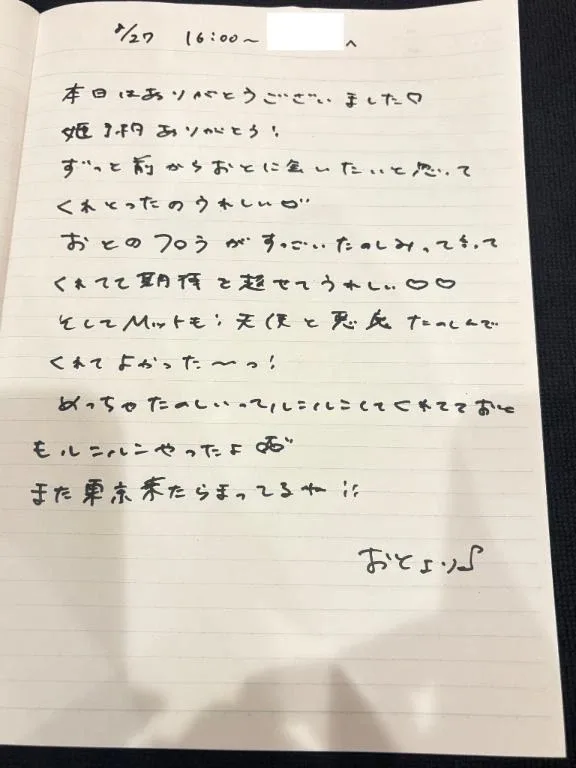 /27 16:00〜 へ
本日はありがとうございました♡
姫予約ありがとう!
ずっと前からおとに会いたいと思って
くれとったのうれしい
おとのプロうがすっごいたのしみって言って
くれてて期待を超せてうれしい♡♡
そしてMットも! 天使と悪魔 たのしんで
くれてよかった〜っ!
めっちゃたのしいってルンルンしてくれてておと
もルンルンやったよ
また東京来たらまってるね!!
おとより♪